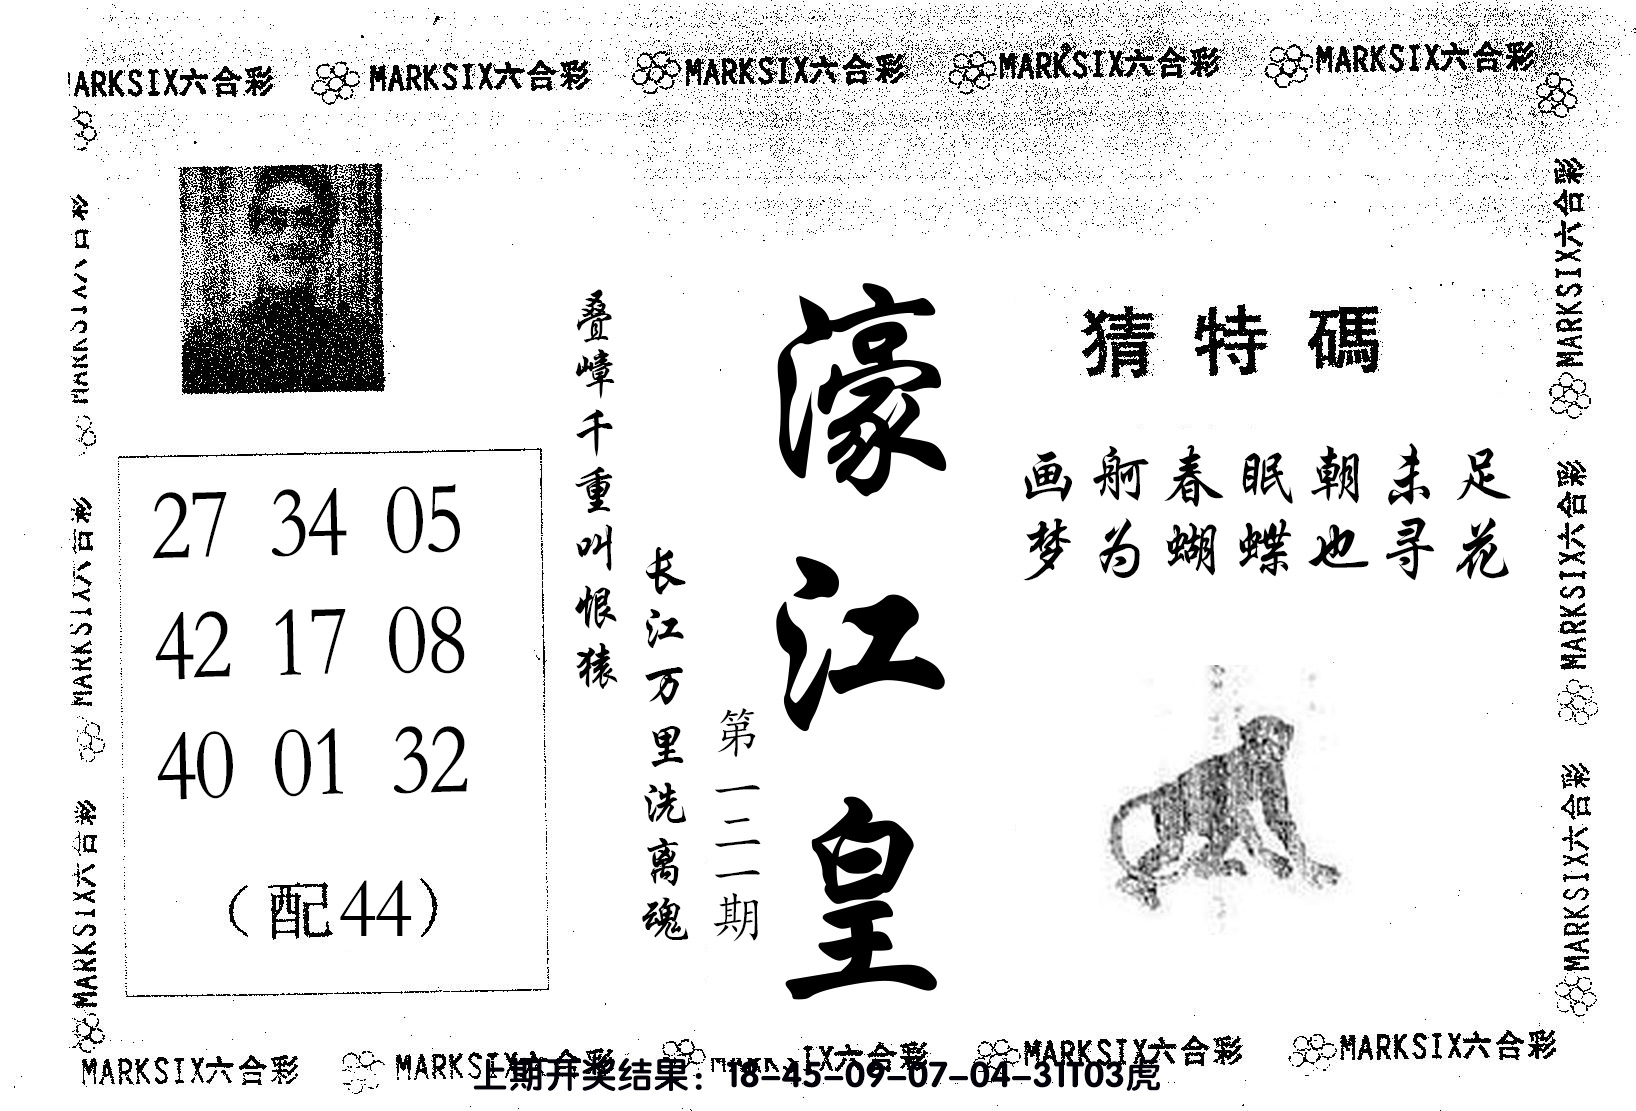 MARKSIX六合彩 MARKSIX六合彩 MARKSIX六合彩 MARKSIX六合彩
猜特碼
画舸春眠朝未足
梦为蝴蝶也寻花
濠江皇
第一二一期
叠嶂千重叫恨猿
长江万里洗离魂
27 34 05
42 17 08
40 01 32
（配44）
MARKSIX六合彩
MARKSIX六合彩
MARKSIX六合彩
MARKSIX六合彩
MARKSIX六合彩
MARKSIX六合彩 MARKSIX六合彩 MARKSIX六合彩 MARKSIX六合彩
上期开奖结果：18-45-09-07-04-31T03虎